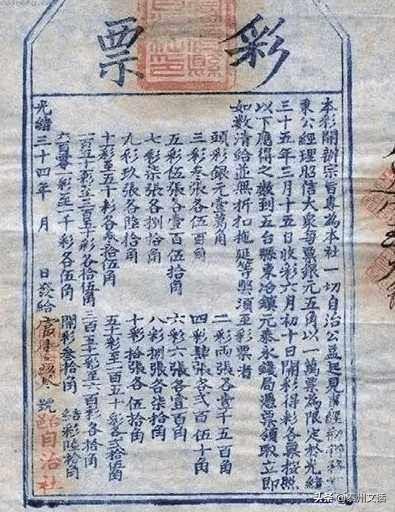 彩票
本彩開辦宗旨專為本社一切自治公益起見
東公經理昭信大眾每票銀元五角以一萬票為限定於光緒
三十五年三月十五日收彩六月初十日開彩得彩各票按照
以下應得之數到五台縣東冶鎮元泰永錢局憑票領取立即
如數清給並無折扣拖延等弊須至彩票者
頭彩銀元壹萬角
二彩兩張各壹千五百角
三彩叁張各五百角
四彩肆張各弍百伍十角
五彩伍張各壹百伍拾角
六彩六張各壹百角
七彩柒張各捌拾角
八彩捌張各柒拾角
九彩玖張各陸拾角
十彩拾張各伍拾角
十彩至五十彩各叁拾伍角
五十彩至一百五十彩各弍拾伍角
一百五十彩至三百五十彩各拾伍角
三百五彩至六百彩各拾角
六百零一彩至一千彩各伍角
開彩叁拾角 結彩陸拾角
光緒三十四年 月 日發給 號 自治社
头条 @泰州文语